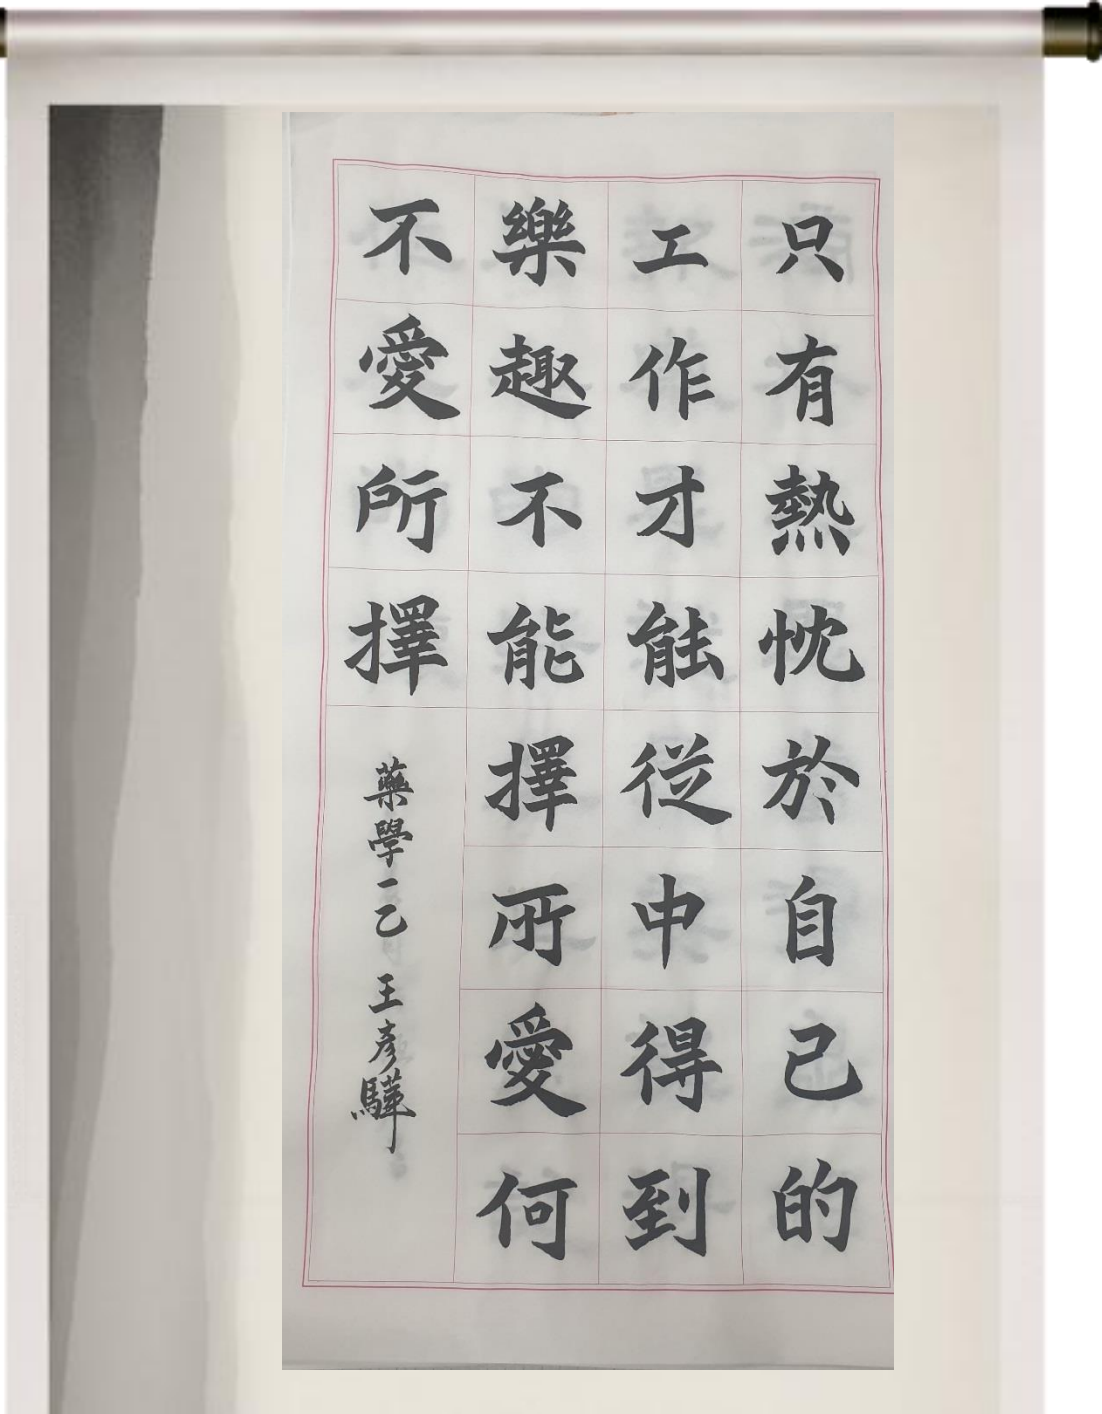 只有熱忱於自己的
工作才能從中得到
樂趣不能擇所愛何
不愛所擇
藥學一乙 王彥驊